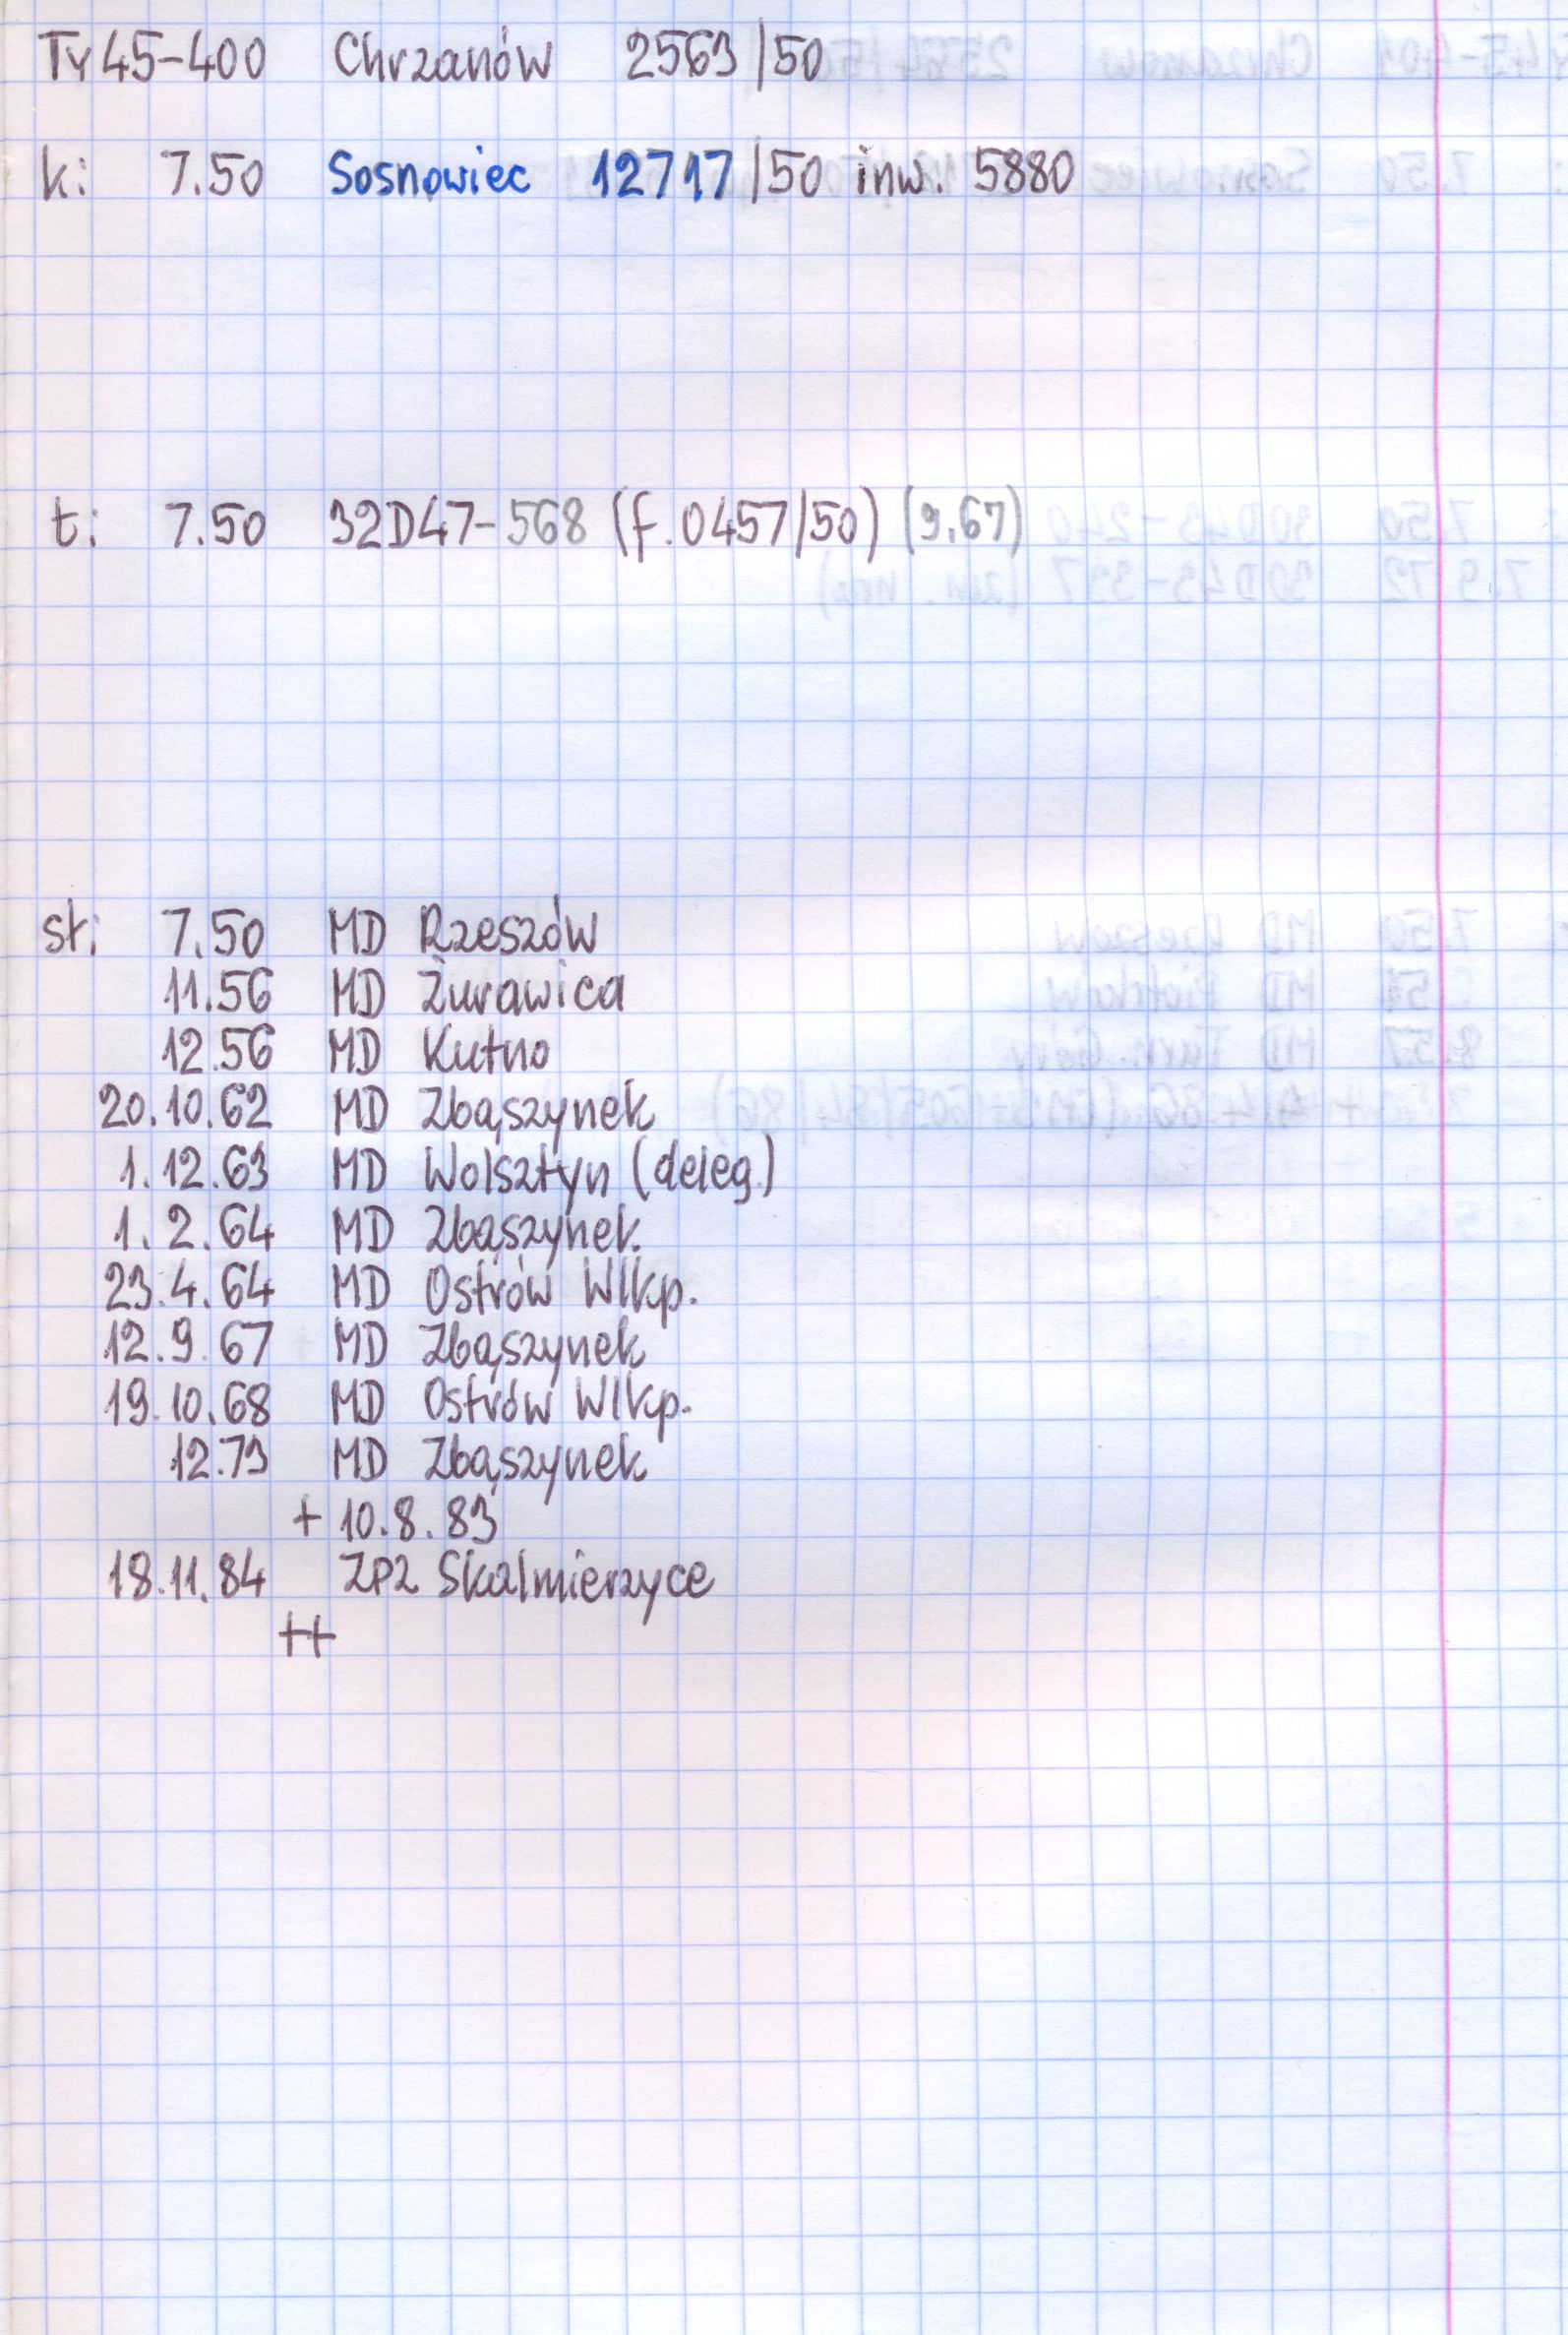 Ty45-400 Chrzanów 2563/50
k: 7.50 Sosnowiec 12717/50 inw. 5880
t: 7.50 32D47-568 (f.0457/50) (9.67)
st: 7.50 MD Rzeszów
11.56 MD Żurawica
12.56 MD Kutno
20.10.62 MD Zbąszynek
1.12.63 MD Wolsztyn (deleg.)
1.2.64 MD Zbąszynek
23.4.64 MD Ostrów Wlkp.
12.9.67 MD Zbąszynek
19.10.68 MD Ostrów Wlkp.
12.73 MD Zbąszynek
+ 10.8.83
18.11.84 ZP2 Skalmierzyce
++